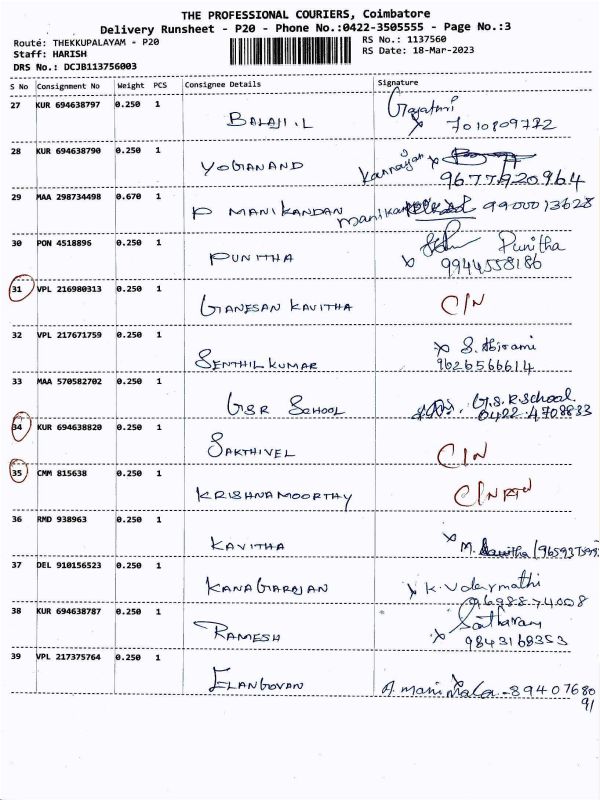 THE PROFESSIONAL COURIERS, Coimbatore
Delivery Runsheet - P20 - Phone No.:0422-3505555 - Page No.:3
Route: THEKKUPALAYAM - P20 RS No.: 1137560
Staff: HARISH RS Date: 18-Mar-2023
DRS No.: DCJB113756003
S No Consignment No Weight PCS Consignee Details Signature
27 KUR 694638797 0.250 1 BALAJI.L Gayathri
x 7010809772
28 KUR 694638790 0.250 1 YOGANAND Kannayan x
9677920964
29 MAA 298734498 0.670 1 P MANIKANDAN 9900013628
30 PON 4518896 0.250 1 PUNITHA Punitha
x 9944558186
31 VPL 216980313 0.250 1 GANESAN KAVITHA C/N
32 VPL 217671759 0.250 1 SENTHIL KUMAR x S. Abirami
9626566614
33 MAA 570582702 0.250 1 GSR SCHOOL G.S.R School
0422.4708833
34 KUR 694638820 0.250 1 SAKTHIVEL C/N
35 CMM 815638 0.250 1 KRISHNAMOORTHY C/N
36 RMD 938963 0.250 1 KAVITHA x M.
37 DEL 910156523 0.250 1 KANAGARAJAN x K. Udaymathi
9698874008
38 KUR 694638787 0.250 1 RAMESH x
9843168353
39 VPL 217375764 0.250 1 ELANGOVAN A. manimala - 89407680
91